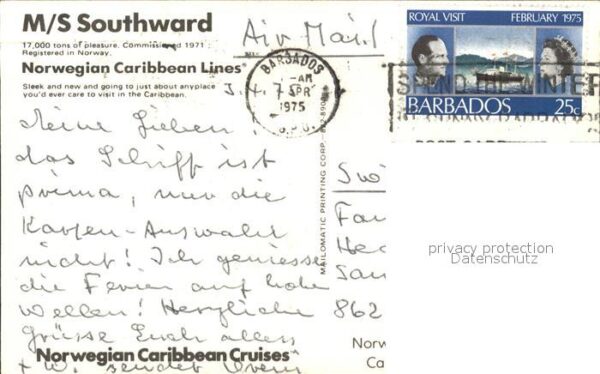 M/S Southward
17,000 tons of pleasure. Commissioned 1971
Registered in Norway.
Norwegian Caribbean Lines®
Sleek and new and going to just about anyplace
you'd ever care to visit in the Caribbean.
Air Mail
BARBADOS
AM
7 APR
1975
G.P.O.
ROYAL VISIT FEBRUARY 1975
SPEND THE WINTER
BARBADOS 25c
Meine Lieben!
das Schiff ist
prima, nur die
Karten-Auswahl
nicht! Ich geniesse
die Ferien auf hohen
Wellen! Herzliche
Grüsse Euch allen
sendet
MAILOMATIC PRINTING CORP.
Fan
San
862
privacy protection
Datenschutz
Norwegian Caribbean Cruises®
Norw
Ca